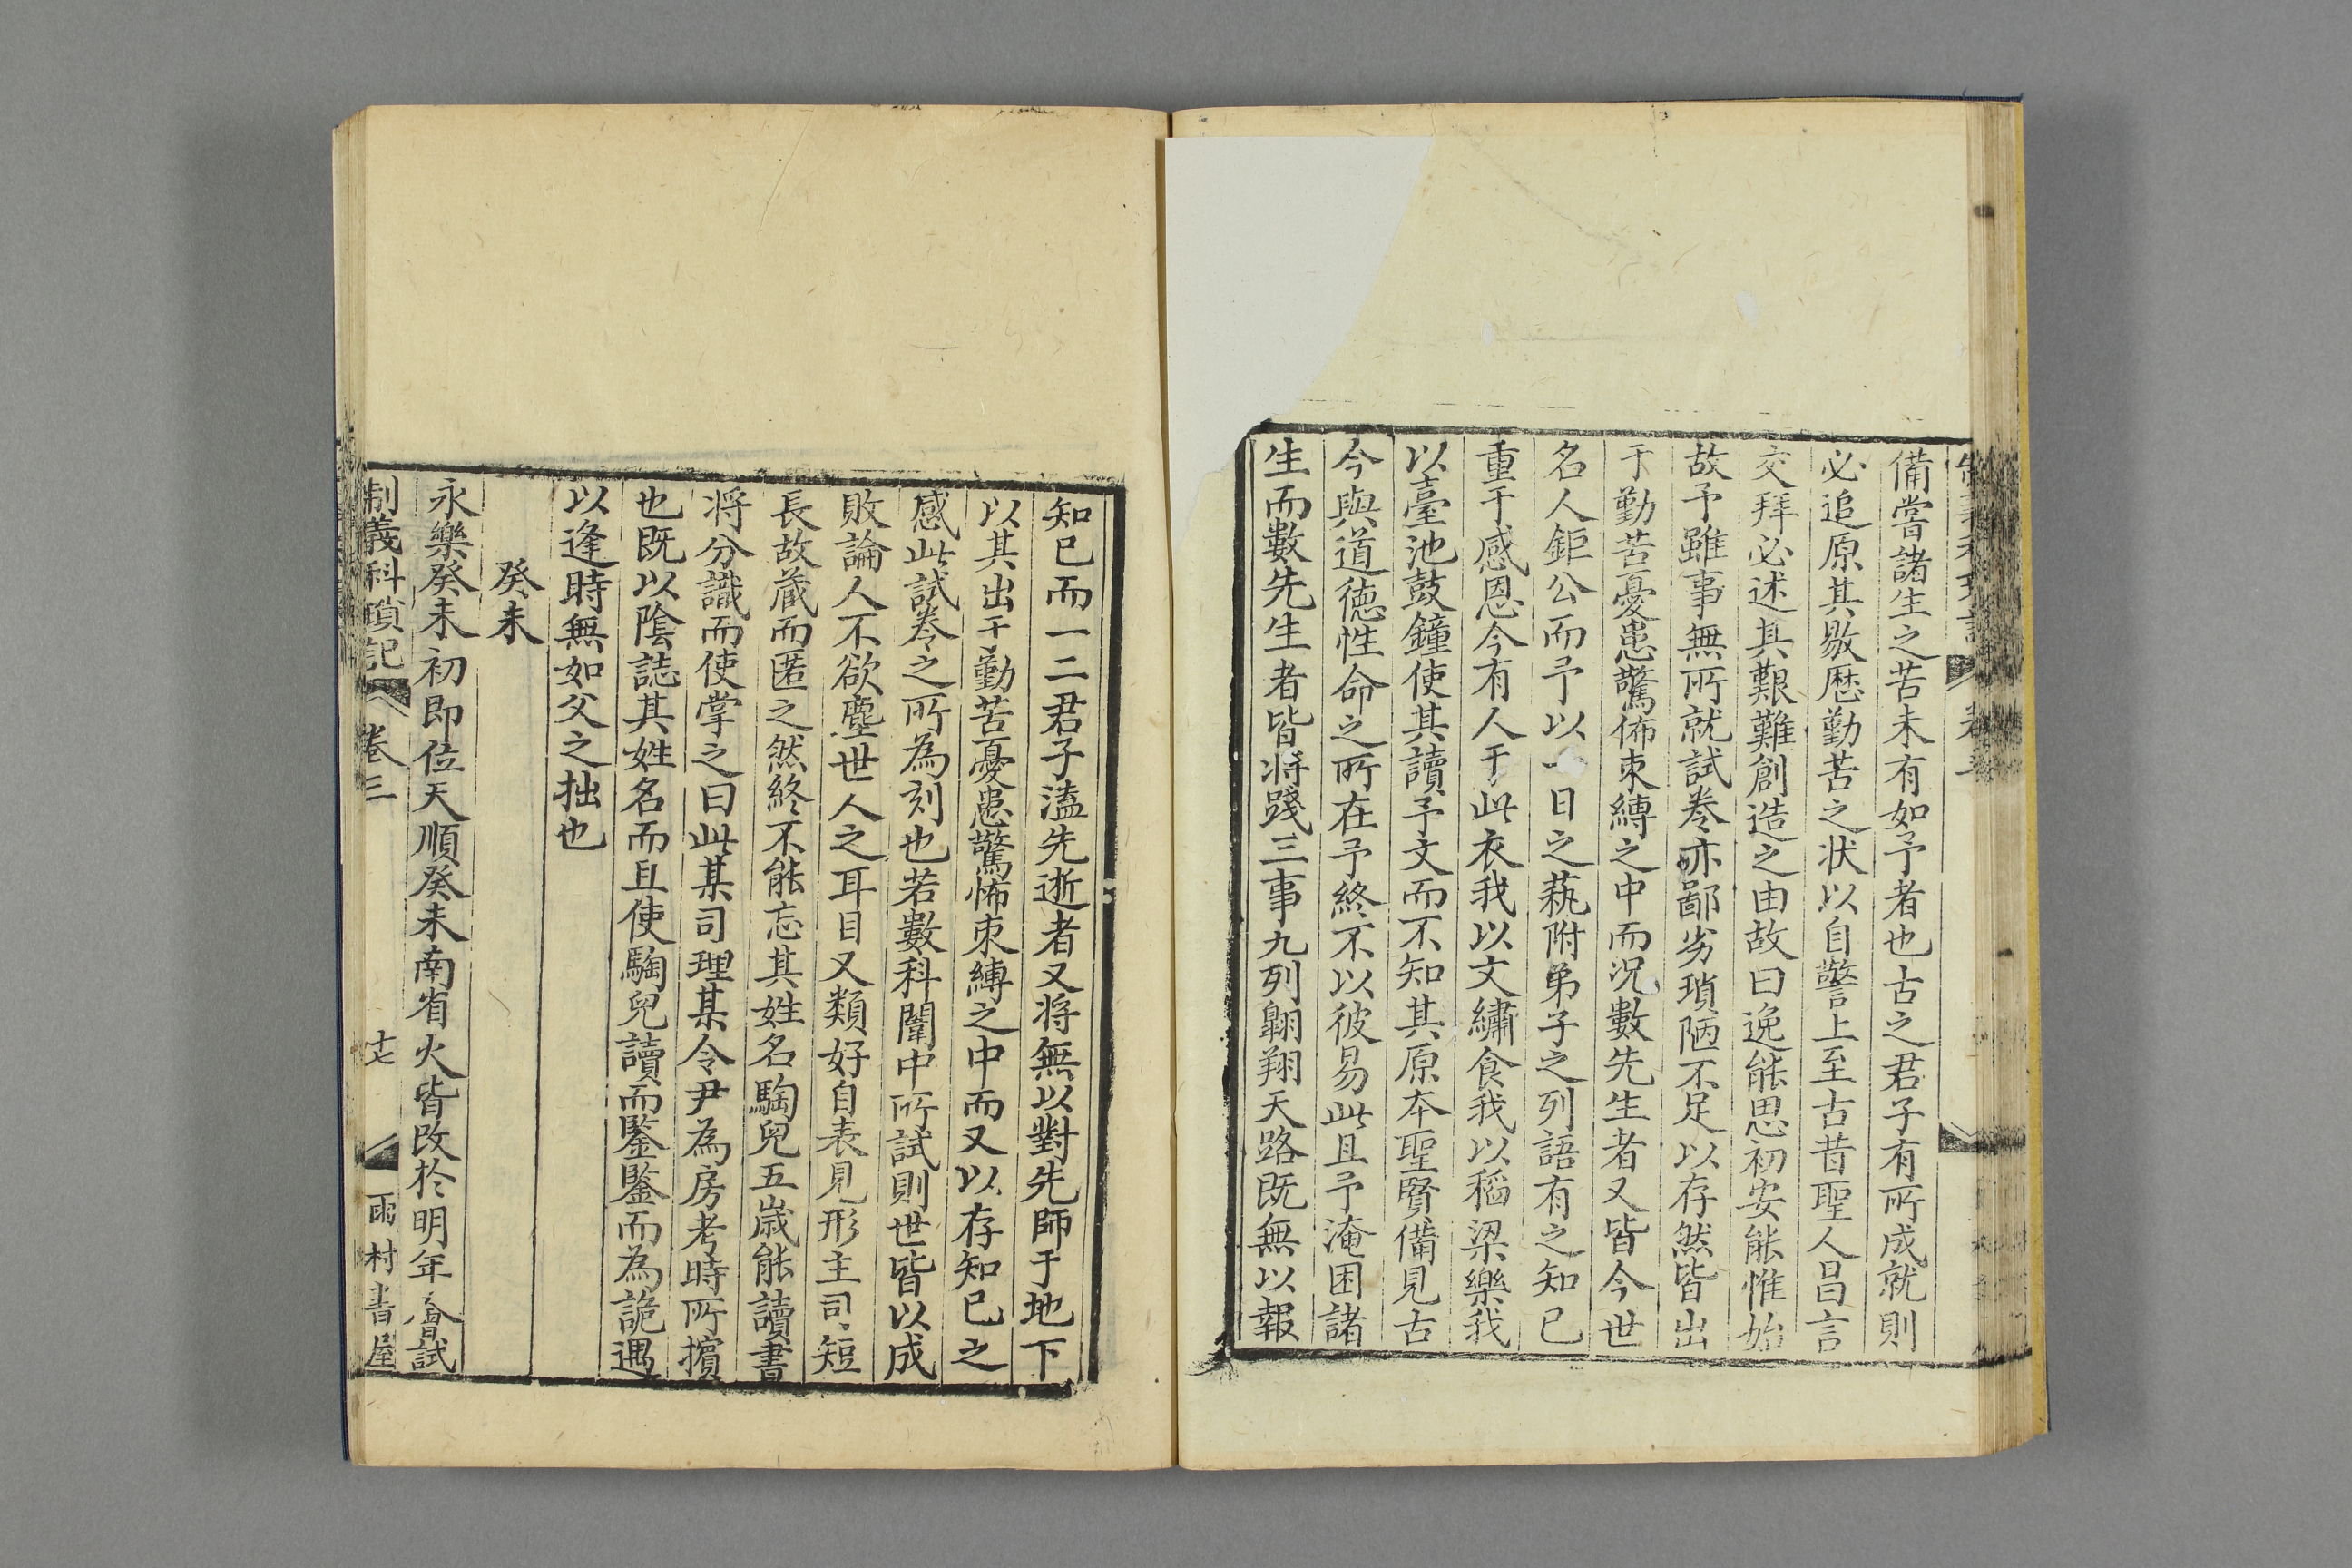 備嘗諸生之苦未有如予者也古之君子有所成就則
必追原其敭歷勤苦之状以自警上至古昔聖人昌言
交拜必述其艱難創造之由故曰逸能思初安能惟始
故予雖事無所就試卷亦鄙劣瑣陋不足以存然皆出
于勤苦憂患驚怖束縛之中而况數先生者又皆今世
名人鉅公而予以一日之藝附弟子之列語有之知己
重于感恩今有人于此衣我以文繡食我以稻梁樂我
以臺池鼓鐘使其讀予文而不知其原本聖賢備見古
今與道德性命之所在予終不以彼易此且予淹困諸
生而數先生者皆将踐三事九列翺翔天路既無以報
知己而一二君子溘先逝者又将無以對先師于地下
以其出于勤苦憂患驚怖束縛之中而又以存知己之
感此試卷之所為刻也若數科闈中所試則世皆以成
敗論人不欲塵世人之耳目又類好自表見形主司短
長故蔵而匿之然終不能忘其姓名騊兒五歳能讀書
将分識而使掌之曰此某司理某令尹為房考時所擯
也既以陰誌其姓名而且使騊兒讀而鑒鑒而為詭遇
以逢時無如父之拙也
癸未
永樂癸未初即位天順癸未南省火皆改於明年會試
制義科瑣記 卷三 十七 雨村書屋